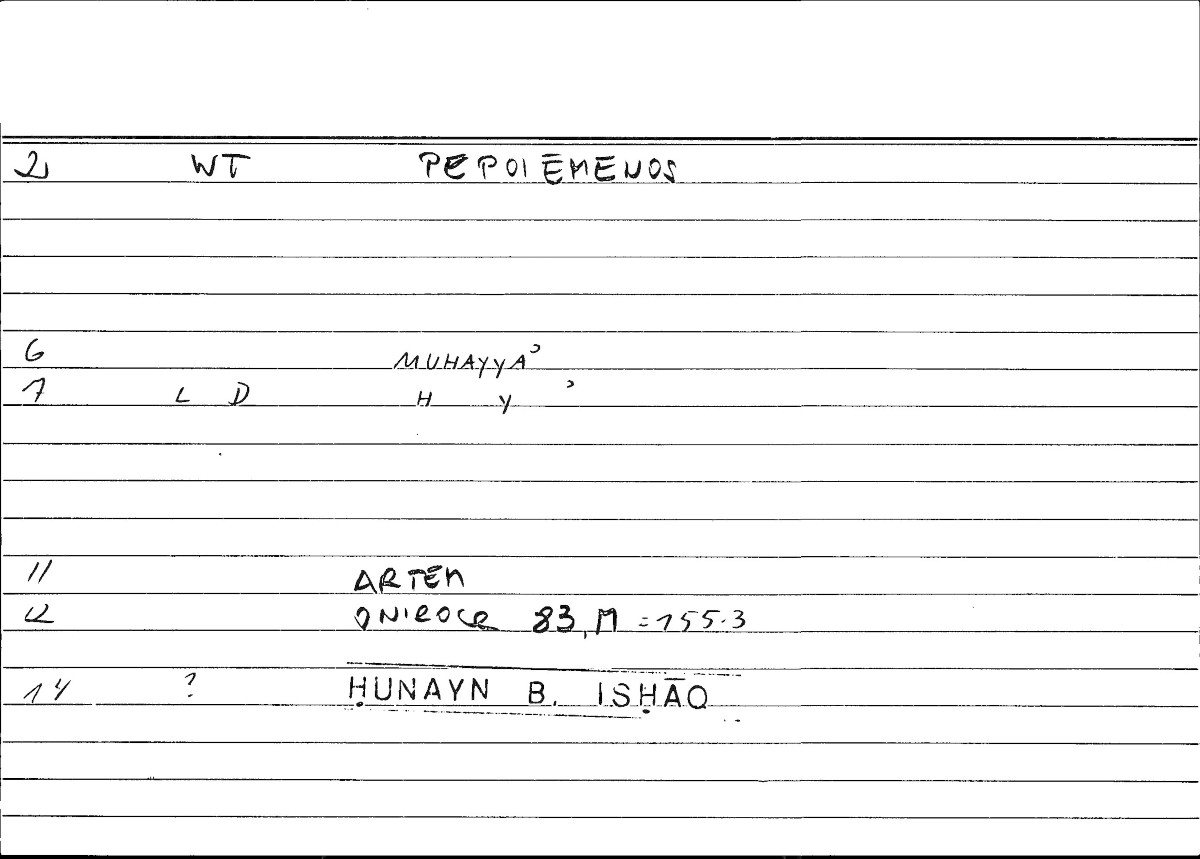 2 WT PEPOIĒMENOS
6 MUHAYYAʾ
7 L D H Y ʾ
11 ARTEM
12 ONIROCR 83,M =155.3
14 ? ḤUNAYN B. ISḤĀQ